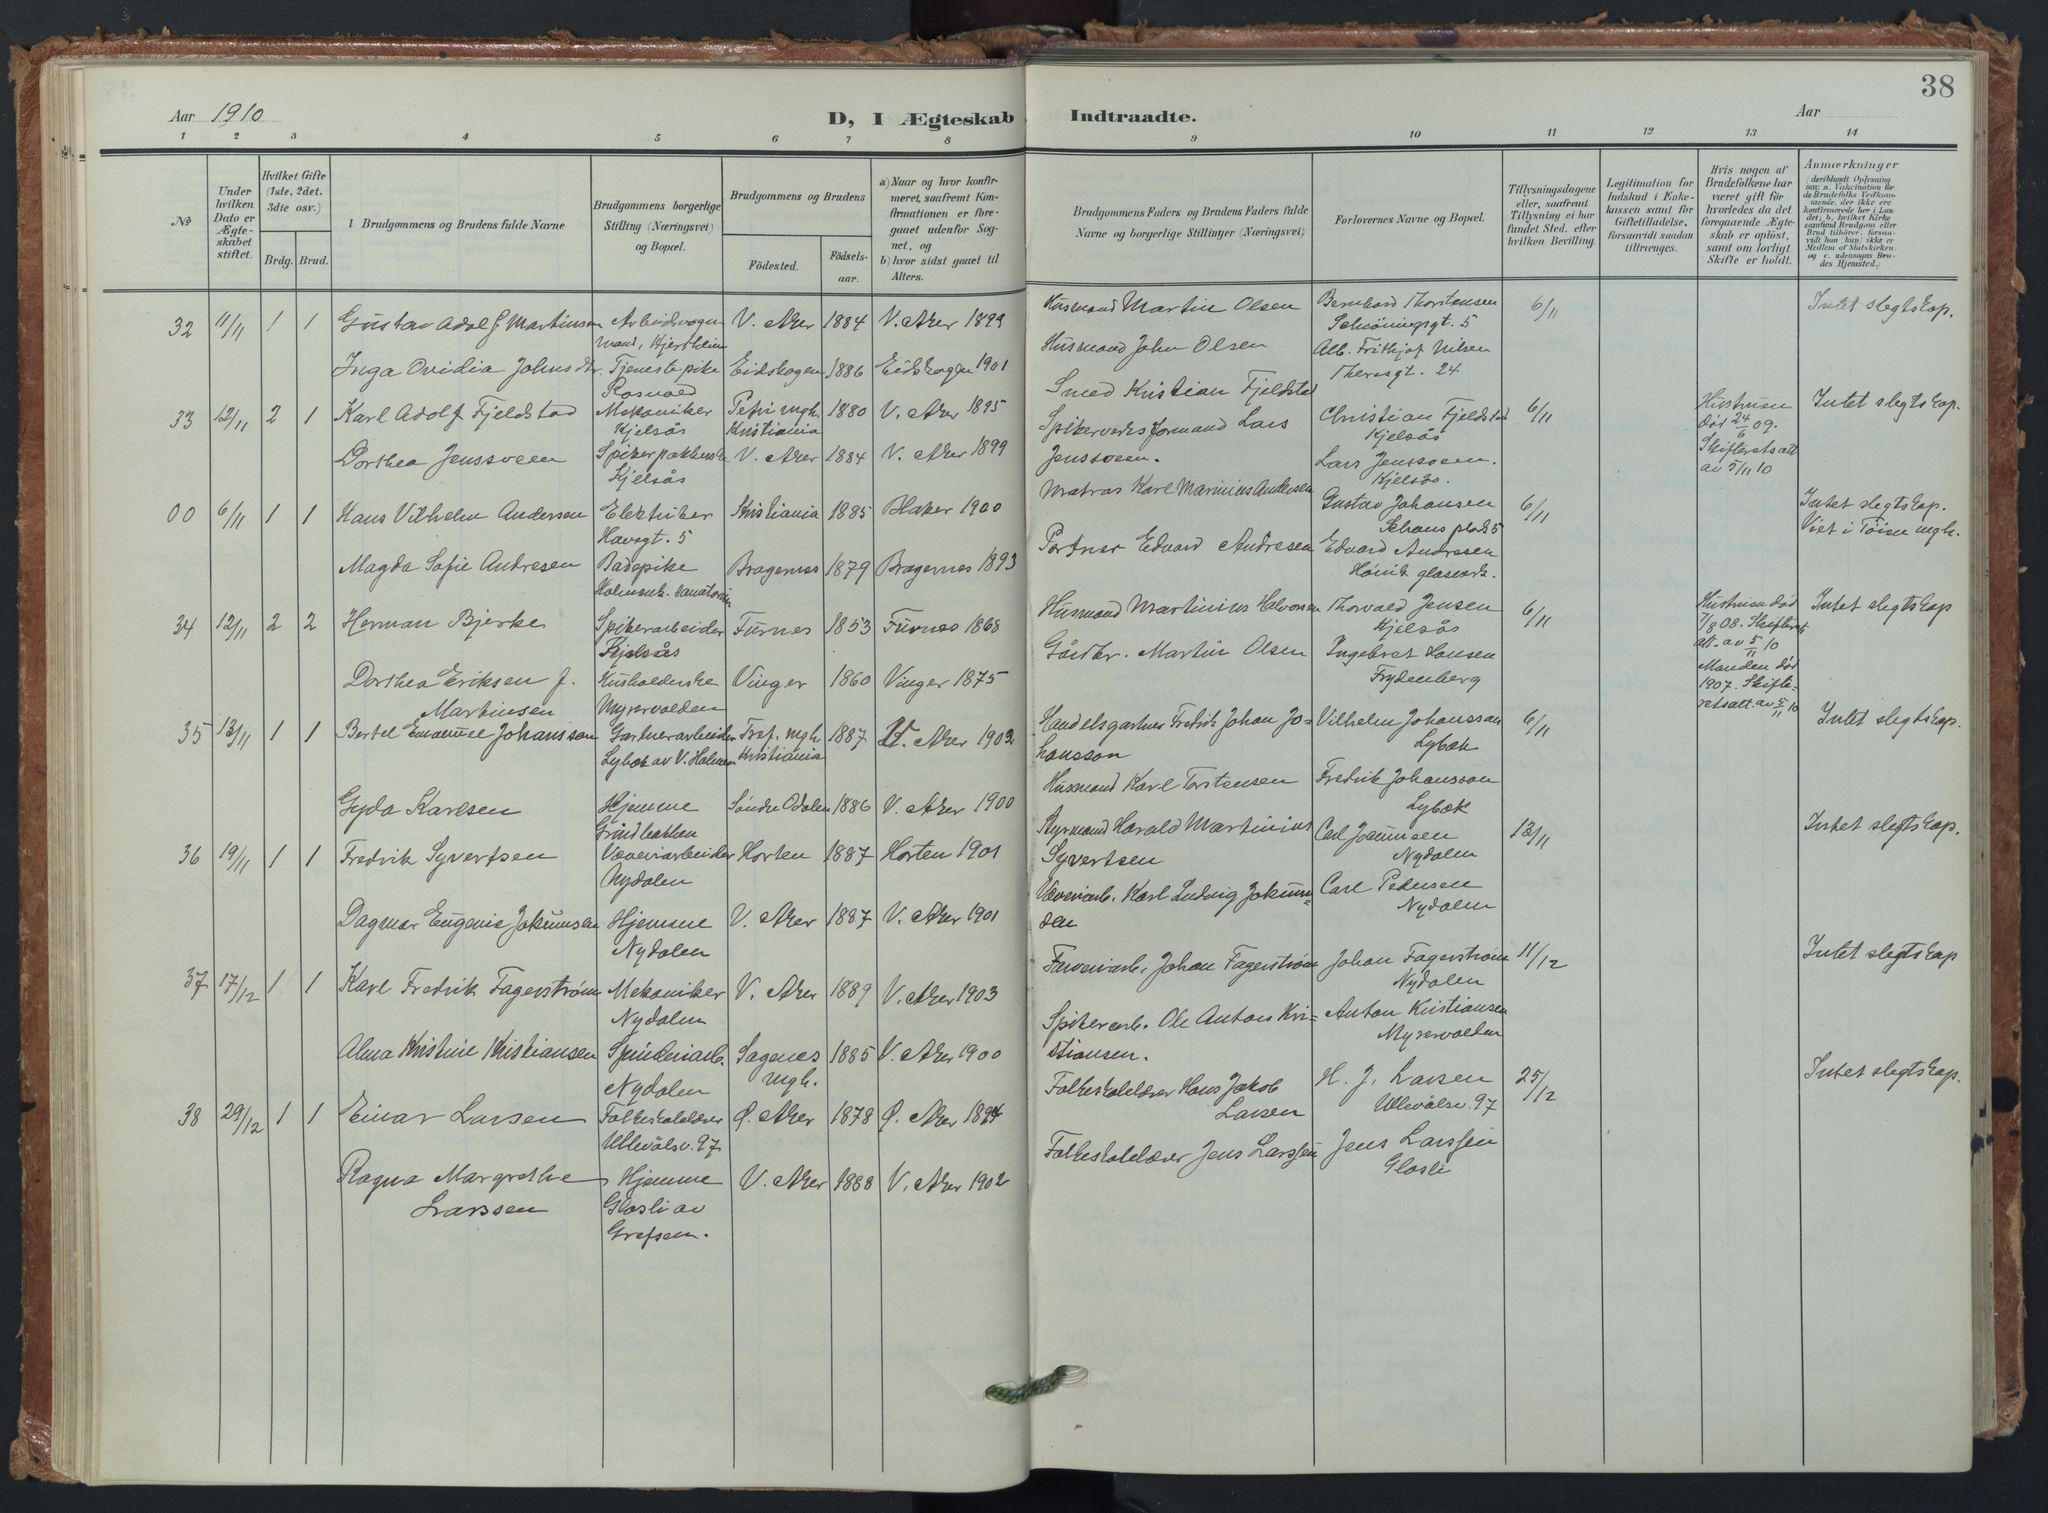 38
Aar 1910
D, I Ægteskab Indtraadte.
Aar
1 2 3 4 5 6 7 8 9 10 11 12 13 14
№
Under hvilken Dato er Ægteskabet stiftet.
Hvilket Gifte (1ste, 2det. 3die osv.)
Brdg. Brud.
1 Brudgommens og Brudens fulde Navne
Brudgommens borgerlige Stilling (Næringsvei) og Bopæl.
Brudgommens og Brudens
Födested. Födselsaar.
a) Naar og hvor konfirmeret, saafremt Konfirmationen er foregaaet udenfor Sognet, og
b) hvor sidst gaaet til Alters.
Brudgommens Faders og Brudens Faders fulde Navne og borgerlige Stillinger (Næringsvei)
Forlovernes Navne og Bopæl.
Tillysningsdagene eller, saafremt Tillysning ei har fundet Sted, efter hvilken Bevilling.
Legitimation for Indskud i Enkekassen samt for Giftetilladelse, forsaavidt saadan tiltrenges.
Hvis nogen af Brudefolkene har været gift för hvorledes da det foregaaende Ægteskab er oplöst, samt om lovligt Skifte er holdt.
Anmærkninger
(deriblandt Oplysning om: a. Vakcination for de Brudefolks Vedkommende, der ikke ere konfirmerede her i Landet; b. hvilket Kirkesamfund Brudgom eller Brud tilhörer, forsaavidt han (hun) ikke er Medlem af Statskirken, og c. udensogns Brudes Hjemsted.)
32 11/11 1 1 Gustav Adolf Martinsen Arbeidsvognmand, Kjerstheim V. Aker 1884 V. Aker 1899 Husmand Martin Olsen Bernhard Thorstensen Schöningsgt. 5 6/11 Intet slegtskap.
Inga Ovidia Johnsdtr. Tjenestepike Eidskogen 1886 Eidskogen 1901 Husmand John Olsen Alb. Frithjof Nilsen Theresgt. 24
33 12/11 2 1 Karl Adolf Fjeldstad Mekaniker Kjelsås Petri mgh. Kristiania 1880 V. Aker 1895 Smed Kristian Fjeldstad Christian Fjeldstad Kjelsås 6/11 Hustruen död 24/6 09. Skifteretsatt av 5/11 10 Intet slegtskap.
Dorthea Jenssveen Spikerpakkerske Kjelsås V. Aker 1884 V. Aker 1899 Spikerverksformand Lars Jenssveen. Lars Jenssveen. Kjelsås.
00 6/11 1 1 Hans Vilhelm Andersen Elektriker Havegt. 5 Kristiania 1885 Blaker 1900 Matros Karl Marinius Andersen Gustav Johansen Schous plads 5 6/11 Intet slegtskap. Viet i Töien mgh.
Magda Sofie Andresen Badepike Holmenk. sanatorium Bragernes 1879 Bragernes 1893 Portner Edvard Andresen Edvard Andresen Hövik glasverk.
34 12/11 2 2 Herman Bjerke Spikerarbeider Kjelsås Furnes 1853 Furnes 1868 Husmand Martinius Halvorsen Thorvald Jensen Kjelsås 6/11 Hustruen död 7/8 08. Skifteretsatt. av 5/11 10 Intet slegtskap
Dorthea Eriksen f. Martinsen Husholderske Myrervolden Vinger 1860 Vinger 1875 Gårdbr. Martin Olsen Ingebret Hansen Frydenberg Manden död 1907. Skifteretsatt. av 5/11 10
35 13/11 1 1 Bertel Emanuel Johansson Gartnerarbeider Lybæk av V. Holmen Tref. mgh. Kristiania 1887 V. Aker 1902 Handelsgartner Fredrik Johan Johansson Vilhelm Johansson Lybæk 6/11 Intet slegtskap.
Gyda Karlsen Hjemme Grindbakken Söndre Odalen 1886 V. Aker 1900 Husmand Karl Torstensen Fredrik Johansson Lybæk
36 19/11 1 1 Fredrik Syvertsen Væveriarbeider Nydalen Horten 1887 Horten 1901 Styrmand Harald Martinius Syvertsen Carl Joakimsen Nydalen 13/11 Intet slegtskap.
Dagmar Eugenie Jokumsen Hjemme Nydalen V. Aker 1887 V. Aker 1901 Væveriarb. Karl Ludvig Jokumsen Carl Pedersen Nydalen
37 17/12 1 1 Karl Fredrik Fagerström Mekaniker Nydalen V. Aker 1889 V. Aker 1903 Farveriarb. Johan Fagerström Johan Fagerström Nydalen 11/12 Intet slegtskap
Alma Kristine Kristiansen Spinderiarb. Nydalen Sagenes mgh. 1885 V. Aker 1900 Spikerarb. Ole Anton Kristiansen. Anton Kristiansen Myrervolden
38 29/12 1 1 Einar Larsen Folkeskolelærer Ullevålsv. 97 Ø. Aker 1878 Ø. Aker 1894 Folkeskolelærer Hans Jakob Larsen H. J. Larsen Ullevålsv. 97 25/12 Intet slegtskap.
Ragna Margrethe Larssen Hjemme Glosli av Grefsen. V. Aker 1888 V. Aker 1902 Folkeskolelærer Jens Larssen Jens Larssen Glosli